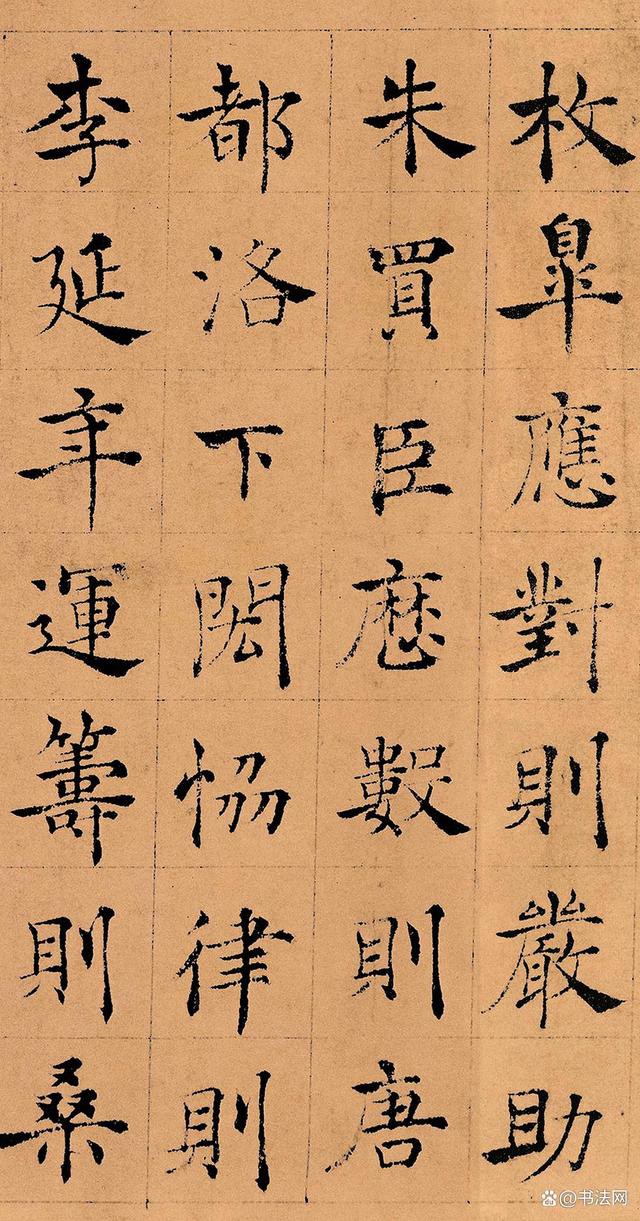 枚臯應對則嚴助
朱買臣曆數則唐
都洛下閎恊律則
李延年運籌則桑
@书法网